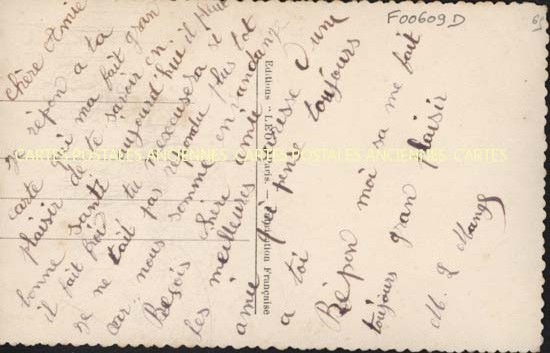 chère Amie
Je répon a ta
carte qui ma fait gran
plaisir de te savoir en
bonne santé aujourd hui il pleut
il fait tu m'excusera si
je ne tait pas répondu plus tot
car nous somme en vandange
Reçois chère amie
les meilleures caresse d une
amie qui pense toujours
a toi
Répon moi sa me fait
toujours gran plaisir
M. L
F00609D
Editions "L Paris. — Française
CARTES POSTALES ANCIENNES CARTES POSTALES ANCIENNES CARTES